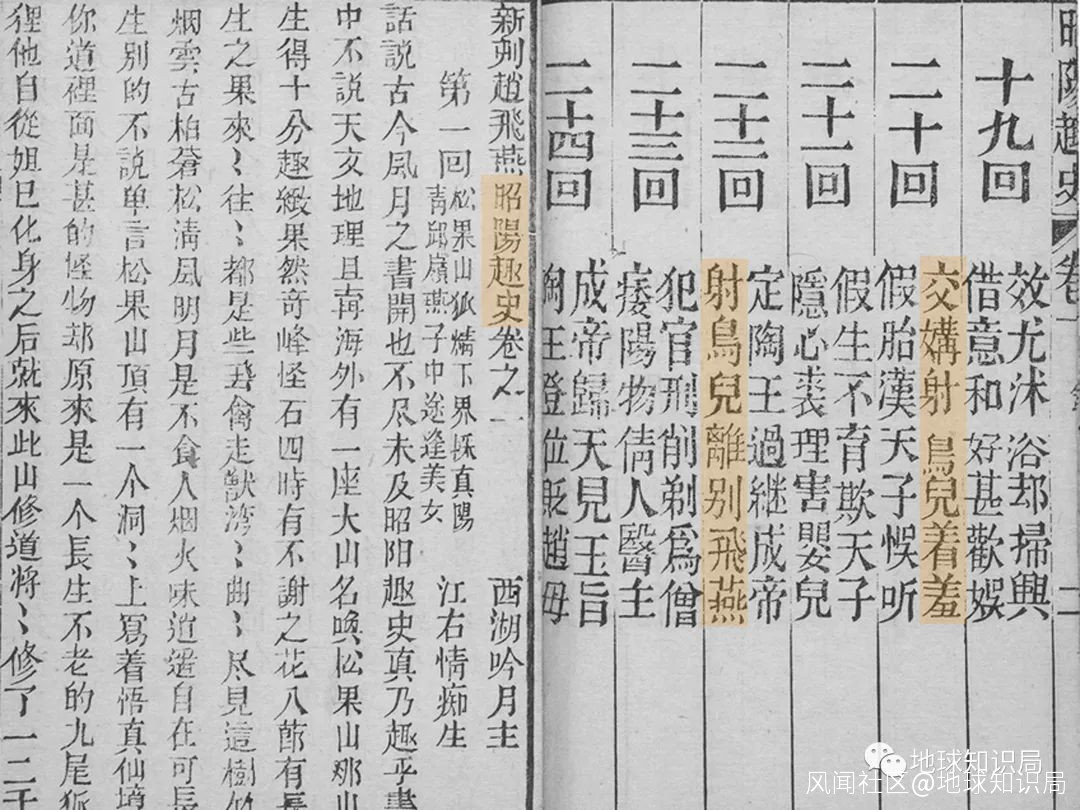 昭陽趣史 卷
十九回
效尤沭浴却掃興
借意和好甚歡娛
二十回
交媾射鳥兒着羞
假胎漢天子悞听
二十一回
假生不育欺天子
隱心裘理害嬰兒
二十二回
定陶王過継成帝
射鳥兒離别飛燕
二十三回
犯官刑削剃爲僧
痿陽物倩人醫主
二十四回
成帝歸天見玉旨
陶王登位貶趙毋
新刿趙飛燕昭陽趣史卷之一 西湖吟月主
第一回 松果山狐精下界採真陽
青邱嶺燕子中途逢美女 江右情痴生
話說古今風月之書開也不尽未及昭阳趣史真乃趣乎書
中不說天文地理且再海外有一座大山名喚松果山那山
生得十分趣緻果然奇峰怪石四時有不謝之花八節有長
生之果來〻往〻都是些飛禽走獸湾〻曲〻尽見這樹似
烟雲古柏蒼松清風明月是不食人烟火味道遥自在可長
生别的不說单言松果山頂有一个洞〻上寫着悟真仙境
你道裡面是甚的怪物却原來是一个長生不老的九尾狐
狸他自從姐已化身之后就來此山修道將〻修了一二千
地球知识局
风闻社区@地球知识局